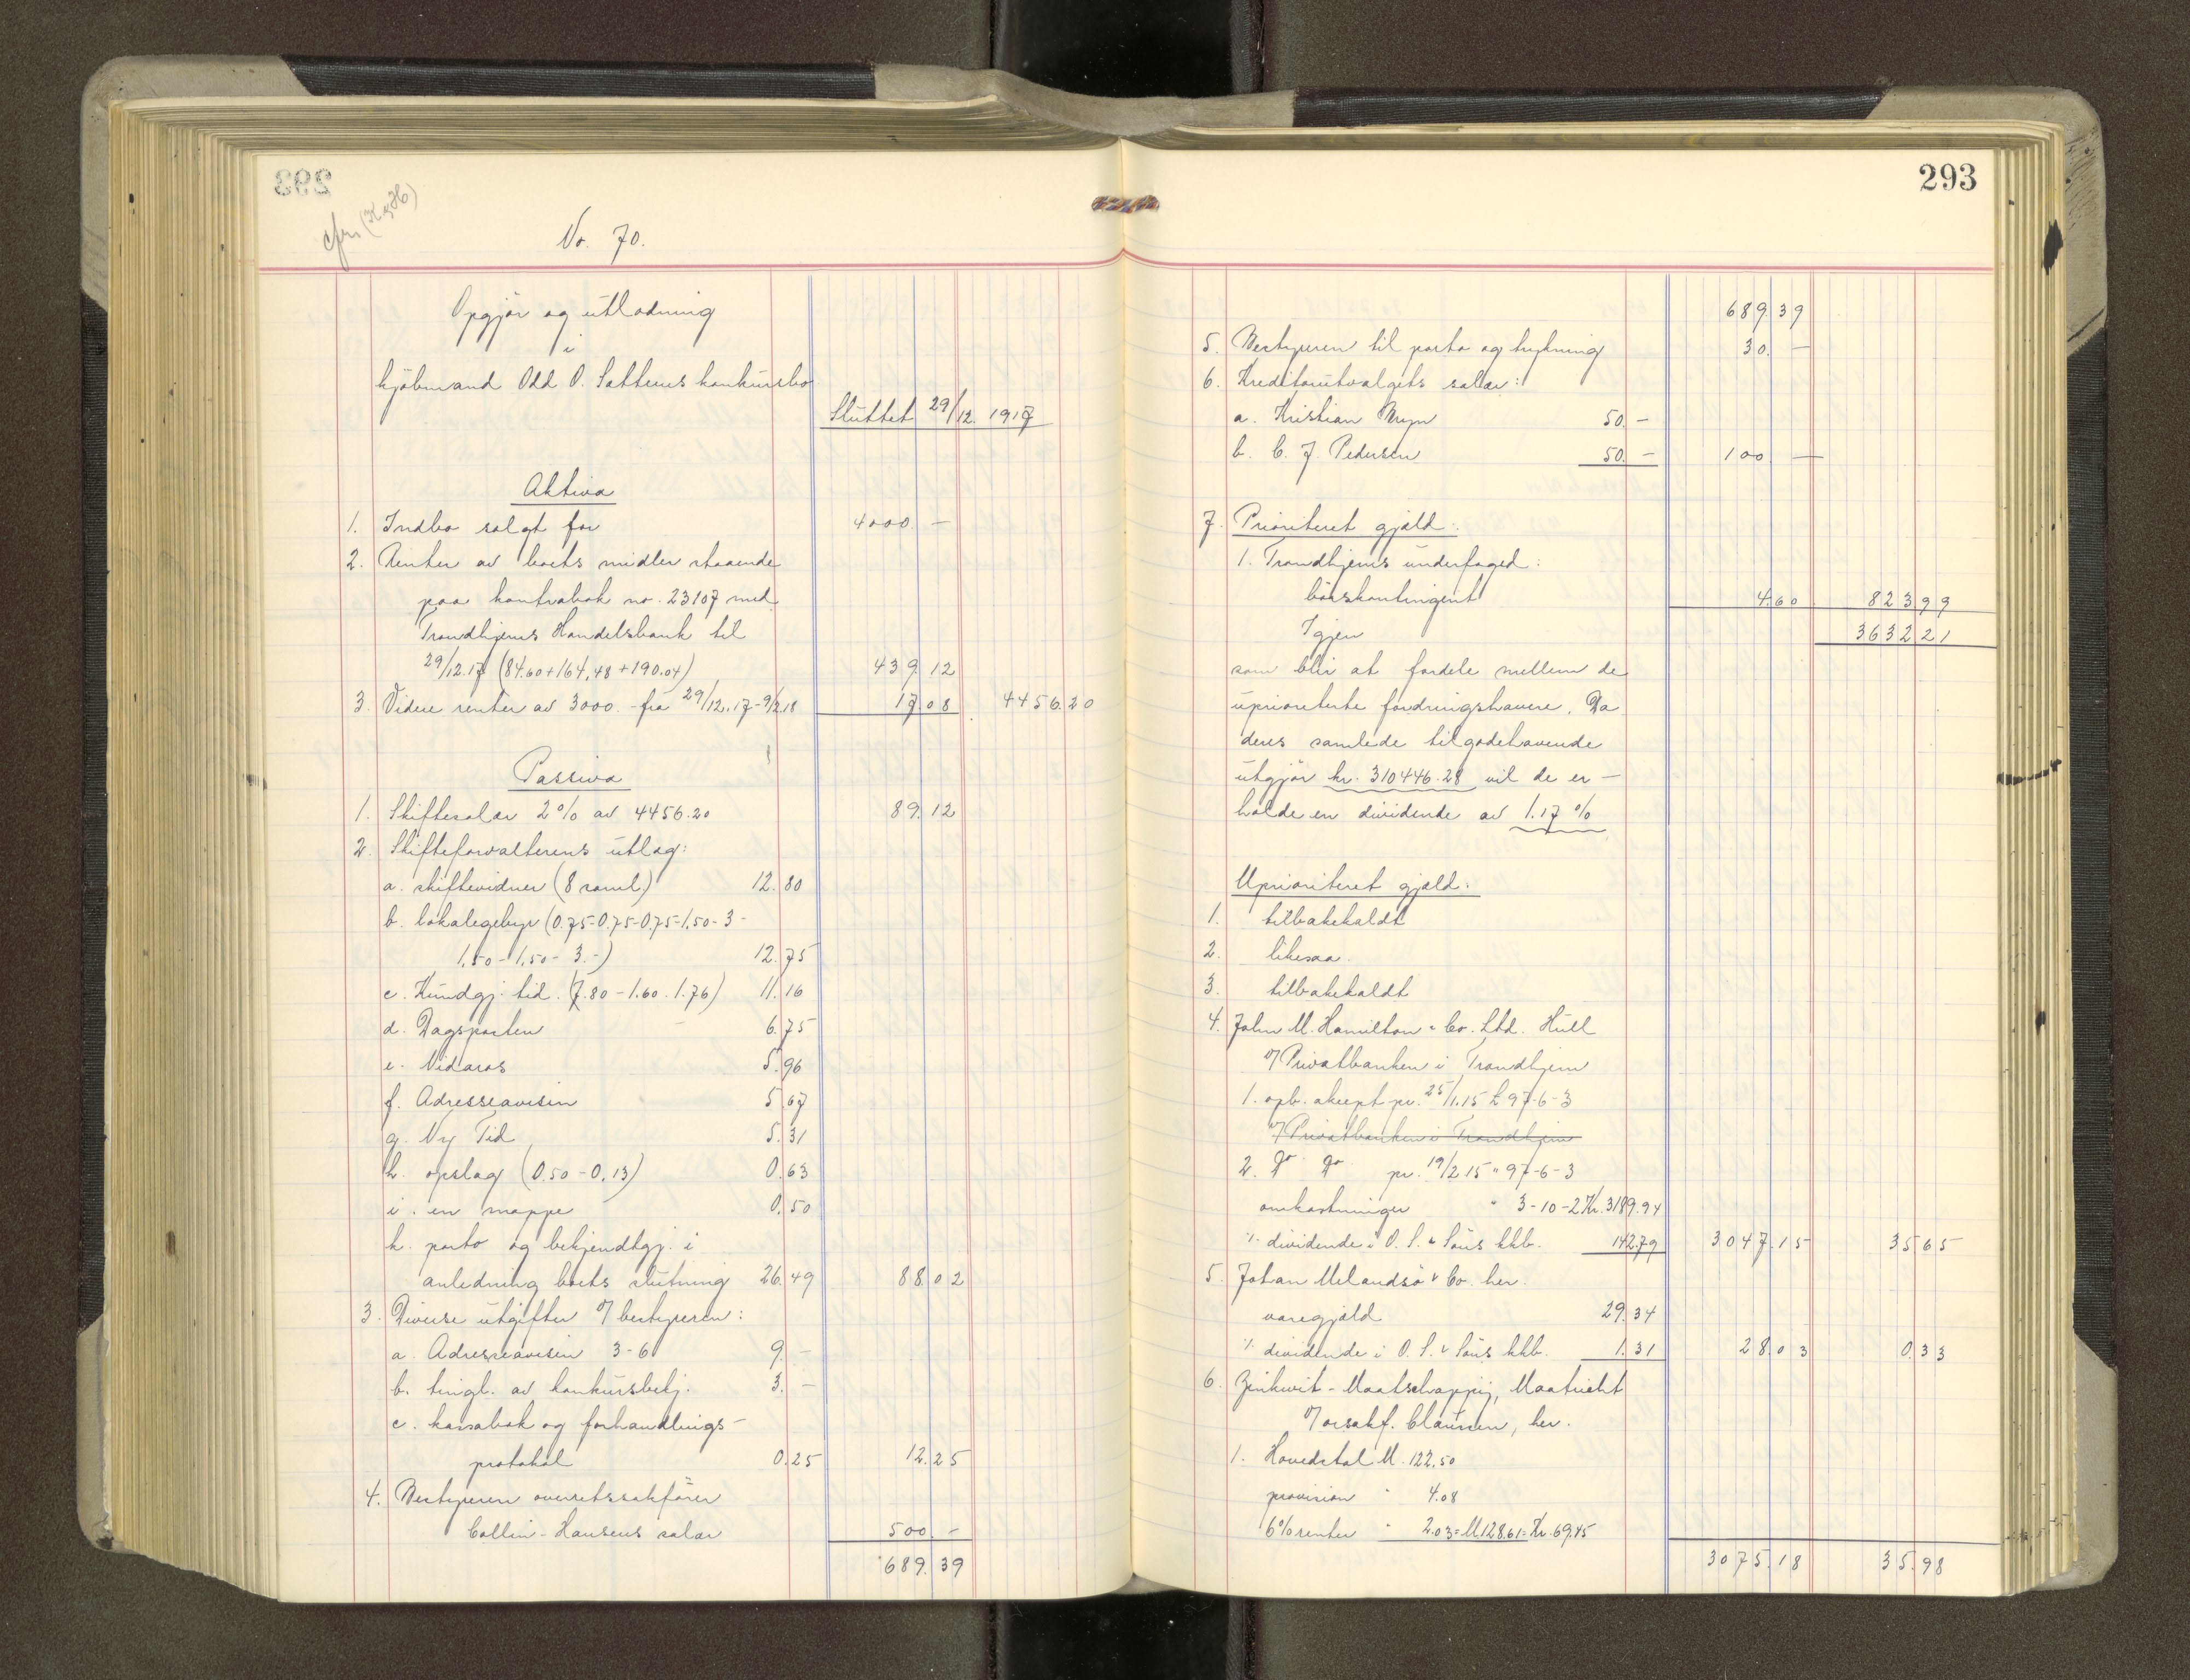 293
cfr.
No. 70.
Opgjör og utlodning
i
kjöbmand Odd O. Sættems konkursbo
Sluttet 29/12. 1917
Aktiva
1. Indbo solgt for 4000 -
2. Renter av boets midler staaende
paa kontrabok no. 23107 med
Trondhjems Handelsbank til
29/12.17 (84.60+164,48+190.04) 439.12
3. Videre renter av 3000.- fra 29/12.17-9/2.18 17.08 4456.20
Passiva
1. Skiftesalær 2% av 4456.20 89.12
2. Skifteforvalterens utlæg:
a. skiftevidner (8 saml.) 12.80
b. lokalegebyr (0.75-0.75-0.75-1.50-3-
1,50-1,50-3.-) 12.75
c. Kundgj. tid. (7.80-1.60.1.76) 11.16
d. Dagsposten 6.75
e. Nidaros 5.96
f. Adresseavisen 5.67
g. Ny Tid 5.31
h. opslag (0.50-0,13) 0.63
i. en mappe 0.50
k. porto og bekjendtgj. i
anledning boets slutning 26.49 88.02
3. Diverse utgifter v/ bestyreren:
a. Adresseavisen 3-6 9.-
b. tingl. av konkursbekj. 3.-
c. kassabok og forhandlings-
protokol 0.25 12.25
4. Bestyreren overretssakförer
Collin-Hansens salær 500.-
689.39
293
689.39
5. Bestyreren til porto og trykning 30.-
6. Kreditorutvalgets salær:
a. Kristian Bryn 50.-
b. C. J. Pedersen 50.- 100 -
7. Prioritert gjæld:
1. Trondhjems underfoged:
börskontingent 4.60 823.99
Igjen 3632.21
som blir at fordele mellem de
uprioriterte fordringshavere. Da
deres samlede tilgodehavende
utgjör kr. 310446.28 vil de er-
holde en dividende av 1.17%
Uprioritert gjæld:
1. tilbakekaldt
2. likesaa
3. tilbakekaldt
4. John M. Hamilton & Co. Ltd. Hull
v/ Privatbanken i Trondhjem
1. opb. aksept pr. 25/1.15 £ 97-6-3
v/ Privatbanken i Trondhjem
2. do do pr. 19/2 15 " 97-6-3
omkostninger " 3-10-2 Kr. 3189.94
÷ dividende i O. S. & Söns kkb. 142.79 3047.15 35.65
5. Johan Melandsö & Co. her.
varegjæld 29.34
÷ dividende i O. S. & Söns kkb. 1.31 28.03 0.33
6. Zinkwit-Maatschappij, Maatricht
v/ orsakf. Claussen, her.
1. Hovedstol M. 122.50
provision " 4.08
6% renter " 2.03 = M. 128.61 = Kr. 69.45
3075.18 35.98